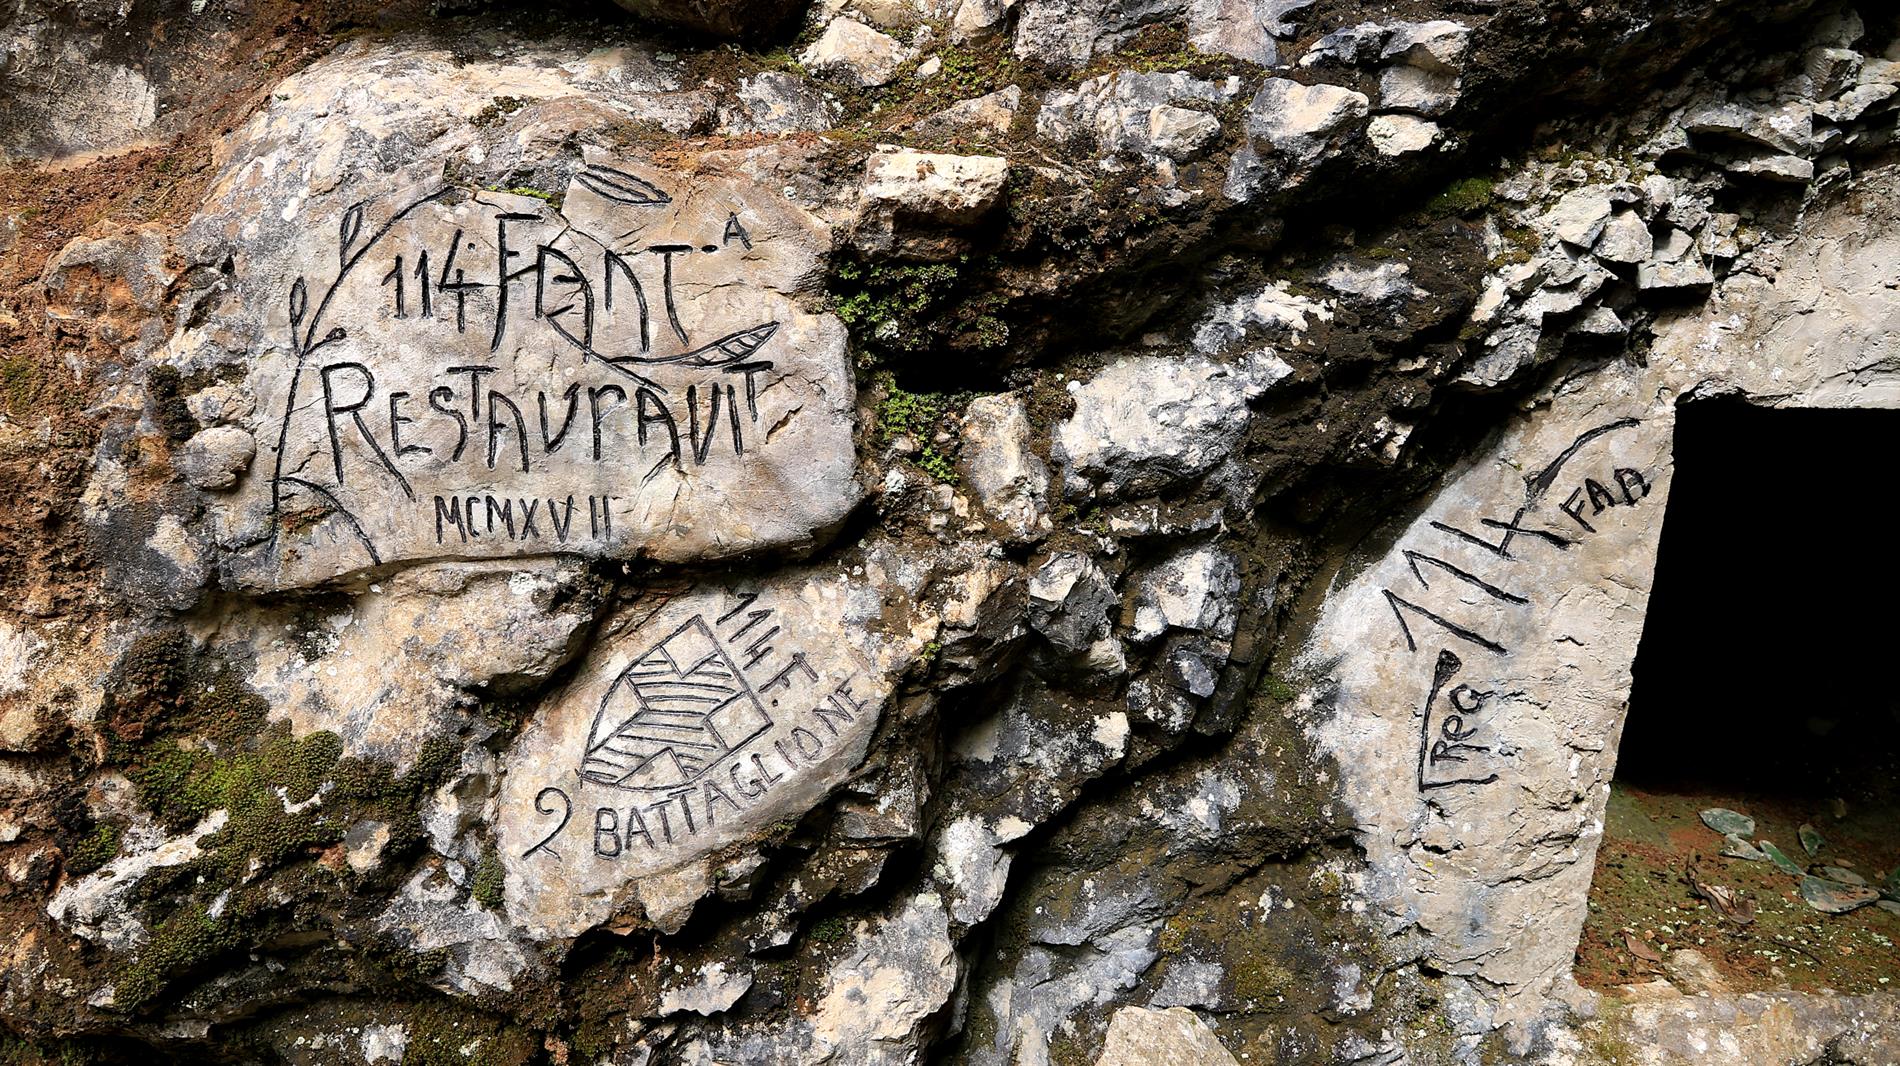 114· FANT·A
RESTAURAVIT
MCMXVII
114 F.T
2 BATTAGLIONE
114 FAN
REG